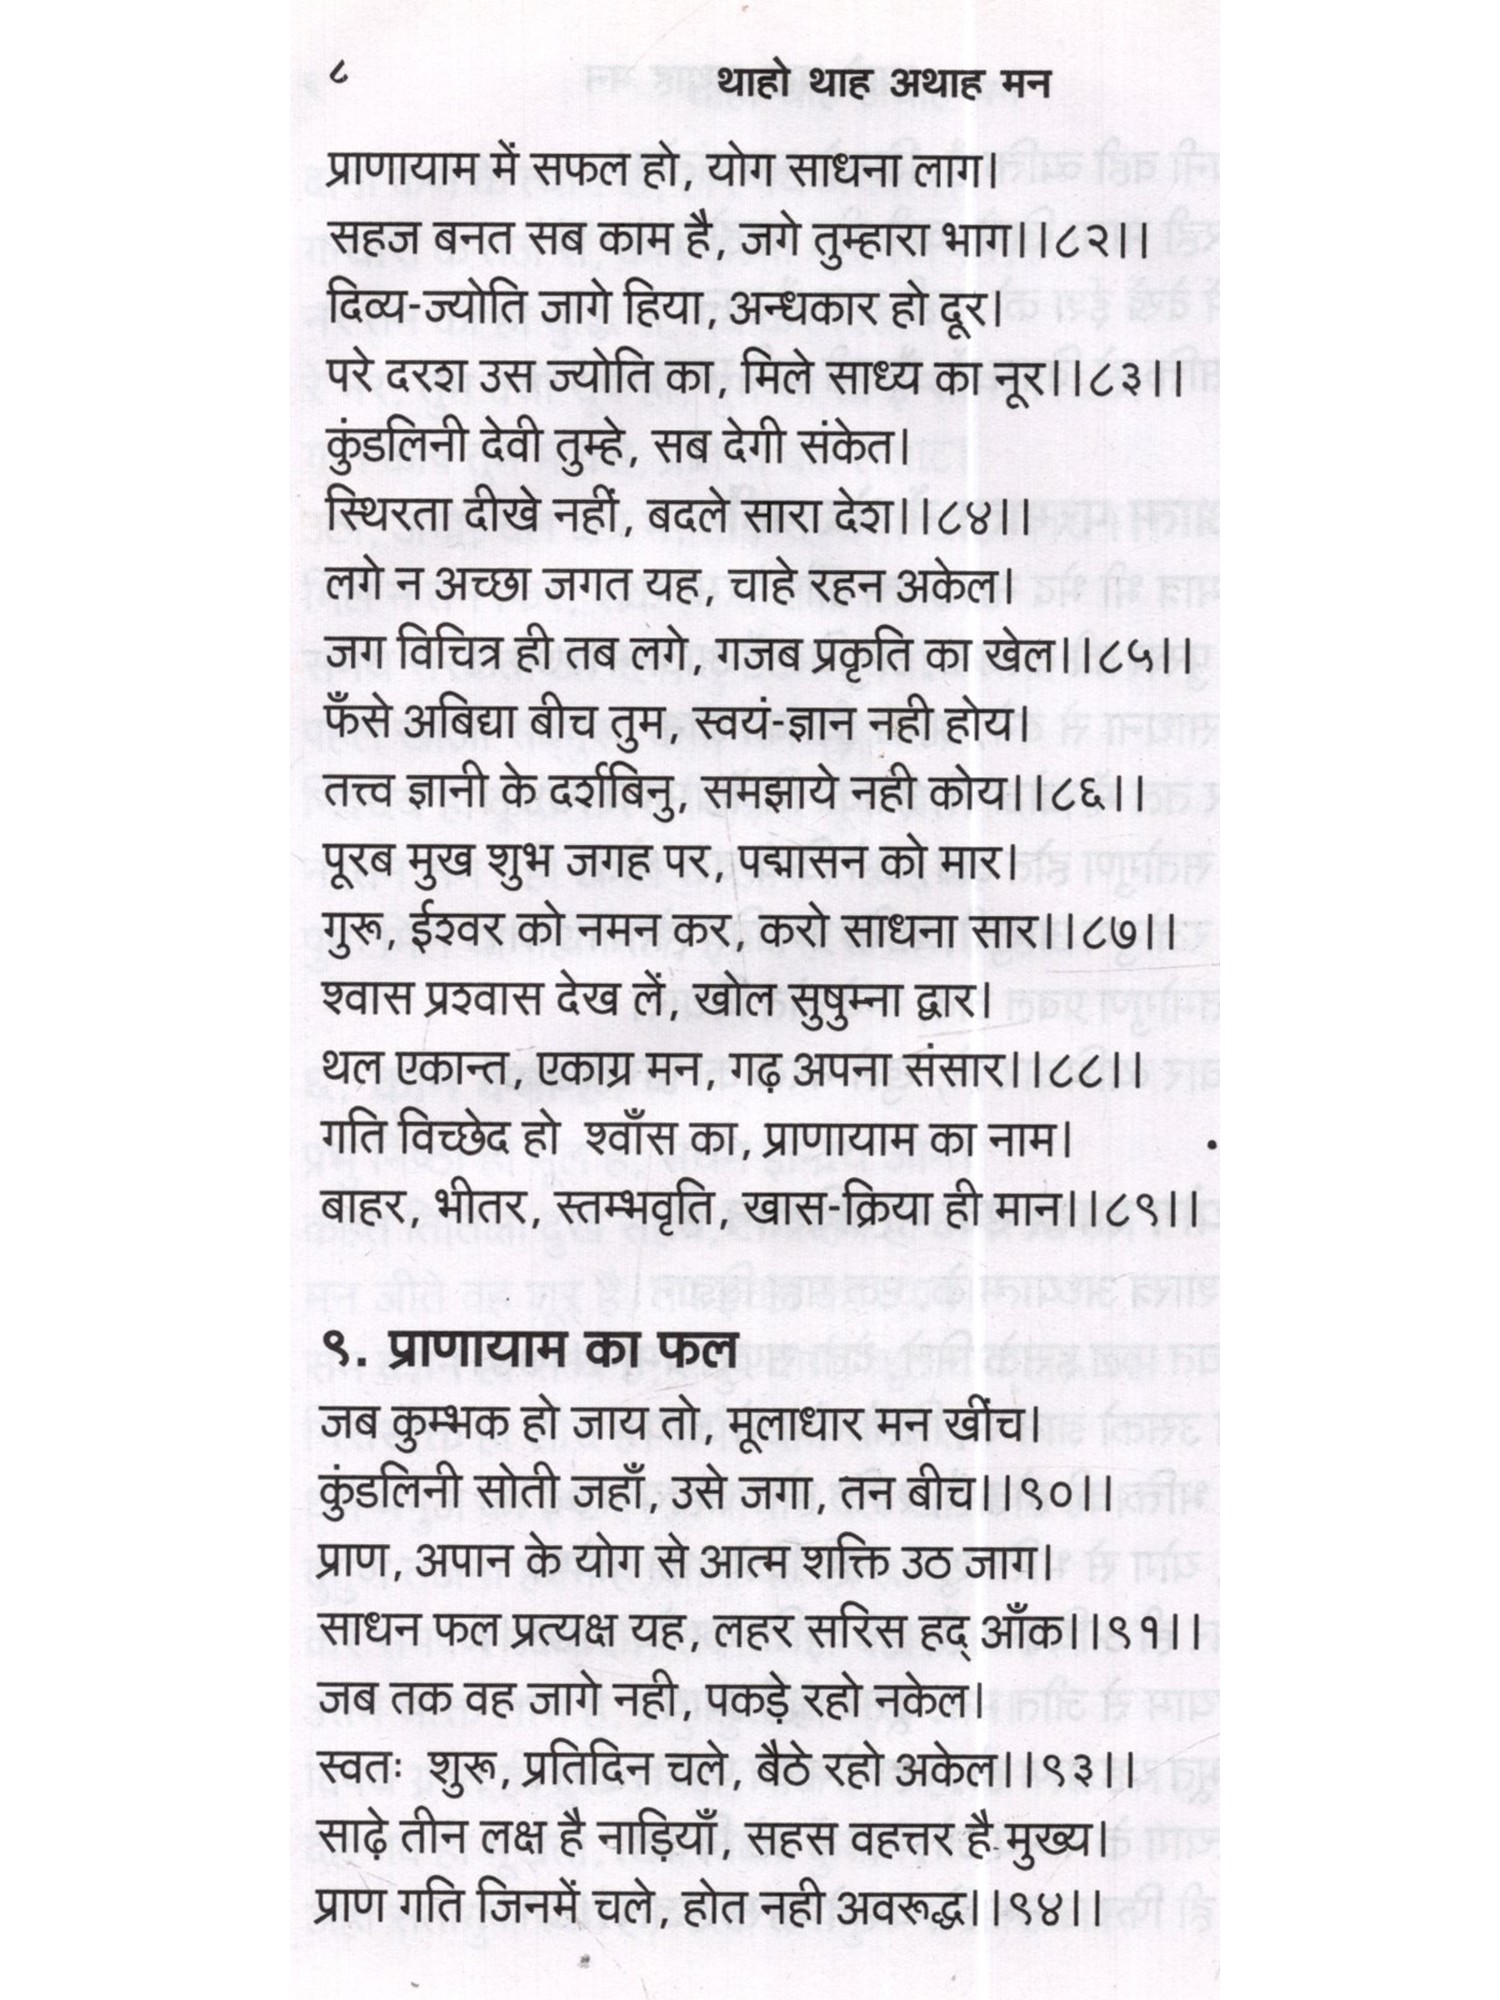 ८ थाहो थाह अथाह मन
प्राणायाम में सफल हो, योग साधना लाग।
सहज बनत सब काम है, जगे तुम्हारा भाग।।८२।।
दिव्य-ज्योति जागे हिया, अन्धकार हो दूर।
परे दरश उस ज्योति का, मिले साध्य का नूर।।८३।।
कुंडलिनी देवी तुम्हे, सब देगी संकेत।
स्थिरता दीखे नहीं, बदले सारा देश।।८४।।
लगे न अच्छा जगत यह, चाहे रहन अकेल।
जग विचित्र ही तब लगे, गजब प्रकृति का खेल।।८५।।
फँसे अबिद्या बीच तुम, स्वयं-ज्ञान नही होय।
तत्त्व ज्ञानी के दर्शबिनु, समझाये नही कोय।।८६।।
पूरब मुख शुभ जगह पर, पद्मासन को मार।
गुरू, ईश्वर को नमन कर, करो साधना सार।।८७।।
श्वास प्रश्वास देख लें, खोल सुषुम्ना द्वार।
थल एकान्त, एकाग्र मन, गढ़ अपना संसार।।८८।।
गति विच्छेद हो श्वाँस का, प्राणायाम का नाम।
बाहर, भीतर, स्तम्भवृति, खास-क्रिया ही मान।।८९।।
९. प्राणायाम का फल
जब कुम्भक हो जाय तो, मूलाधार मन खींच।
कुंडलिनी सोती जहाँ, उसे जगा, तन बीच।।९०।।
प्राण, अपान के योग से आत्म शक्ति उठ जाग।
साधन फल प्रत्यक्ष यह, लहर सरिस हद् आँक।।९१।।
जब तक वह जागे नही, पकड़े रहो नकेल।
स्वतः शुरू, प्रतिदिन चले, बैठे रहो अकेल।।९३।।
साढ़े तीन लक्ष है नाड़ियाँ, सहस वहत्तर है मुख्य।
प्राण गति जिनमें चले, होत नही अवरूद्ध।।९४।।